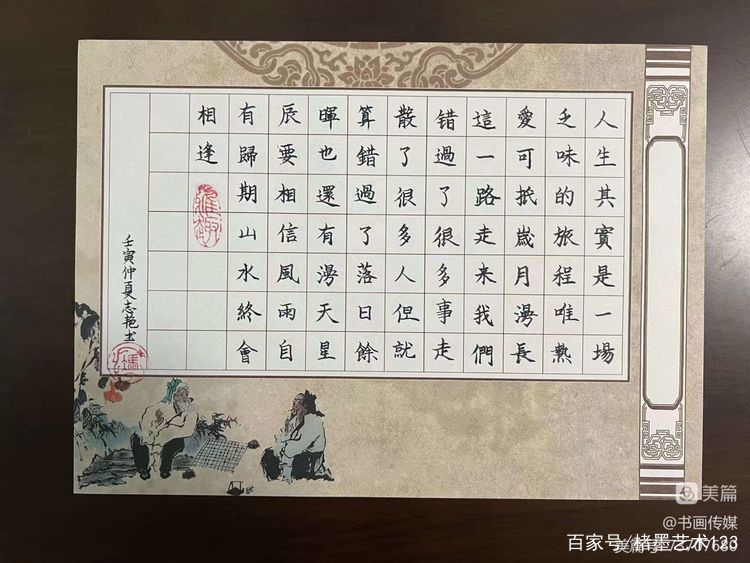 人生其實是一場
乏味的旅程唯熱
愛可抵歲月漫長
這一路走來我們
錯過了很多事走
散了很多人但就
算錯過了落日餘
暉也還有漫天星
辰要相信風雨自
有歸期山水終會
相逢
壬寅仲夏志艳书
美篇
@书画传媒
百家号/楮墨艺术123